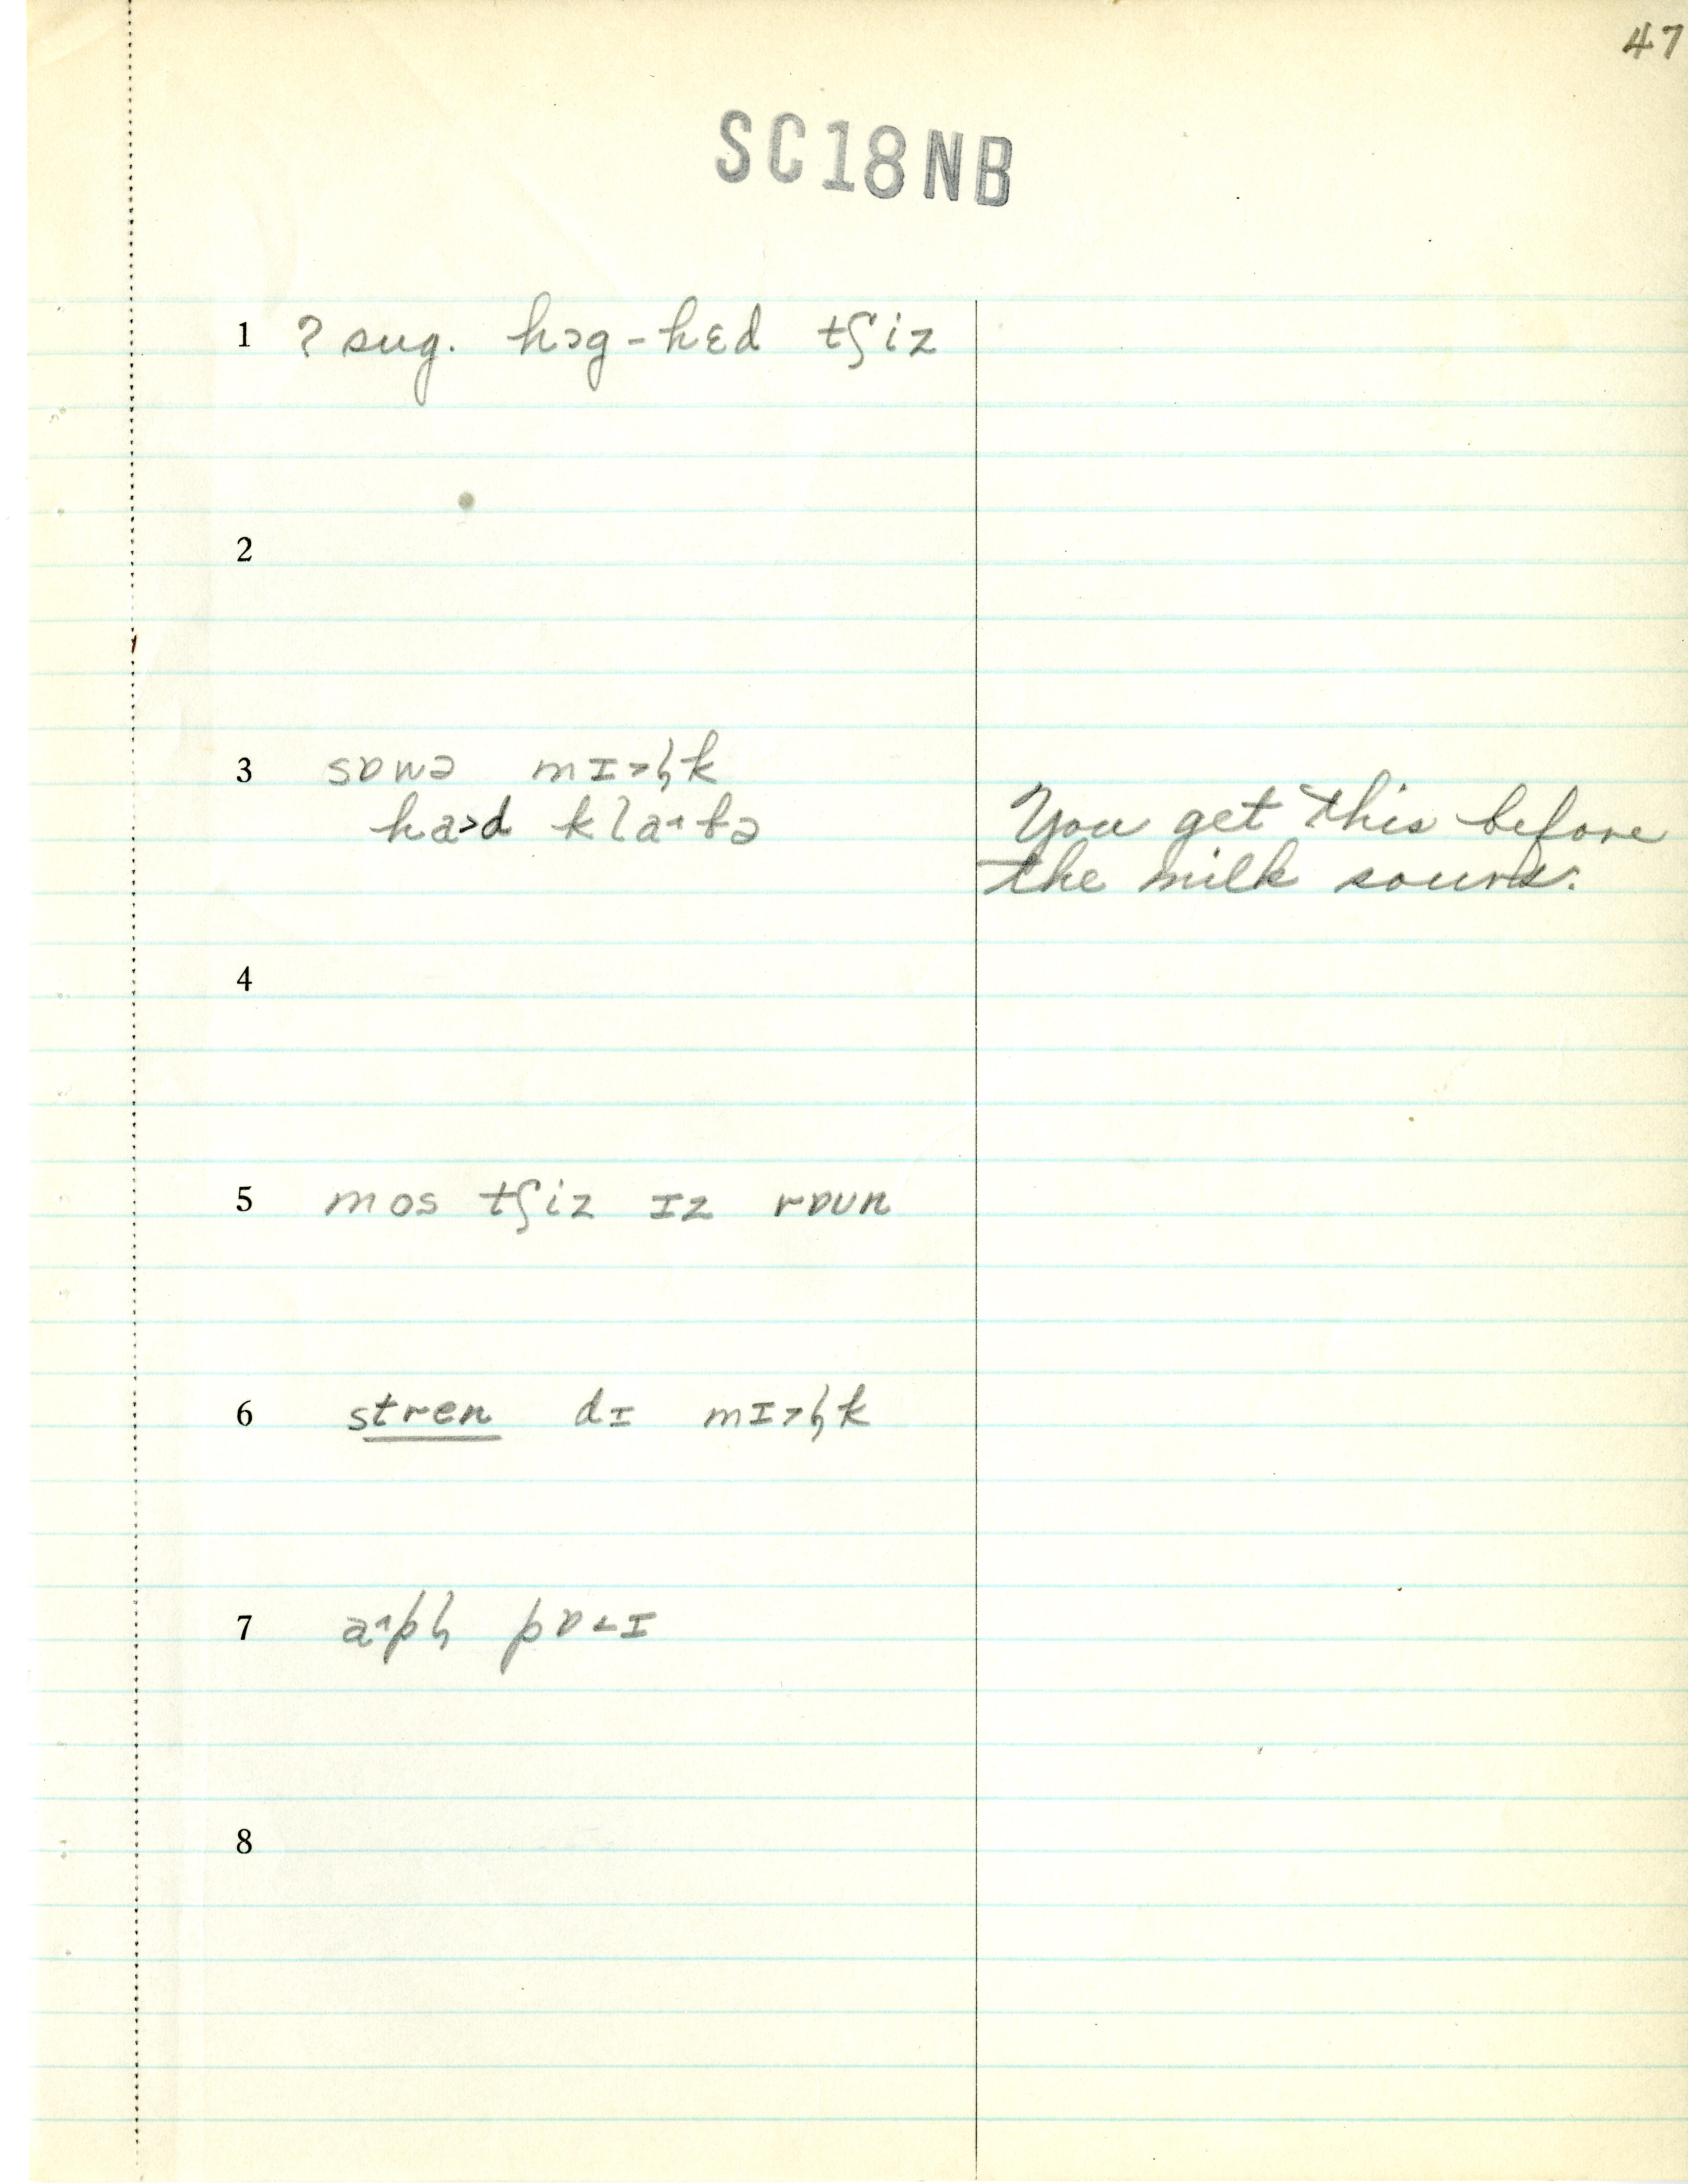 47
SC18NB
1 ? sug. hɔg-hɛd tʃiz
2
3 sɒwə mɪ˃l̩k
ha˃d kla˔bə
You get this before
the milk sours.
4
5 mos tʃiz ɪz rɒun
6 stren dɪ mɪ˃l̩k
7 a˔pl̩ pɒ˂ɪ
8